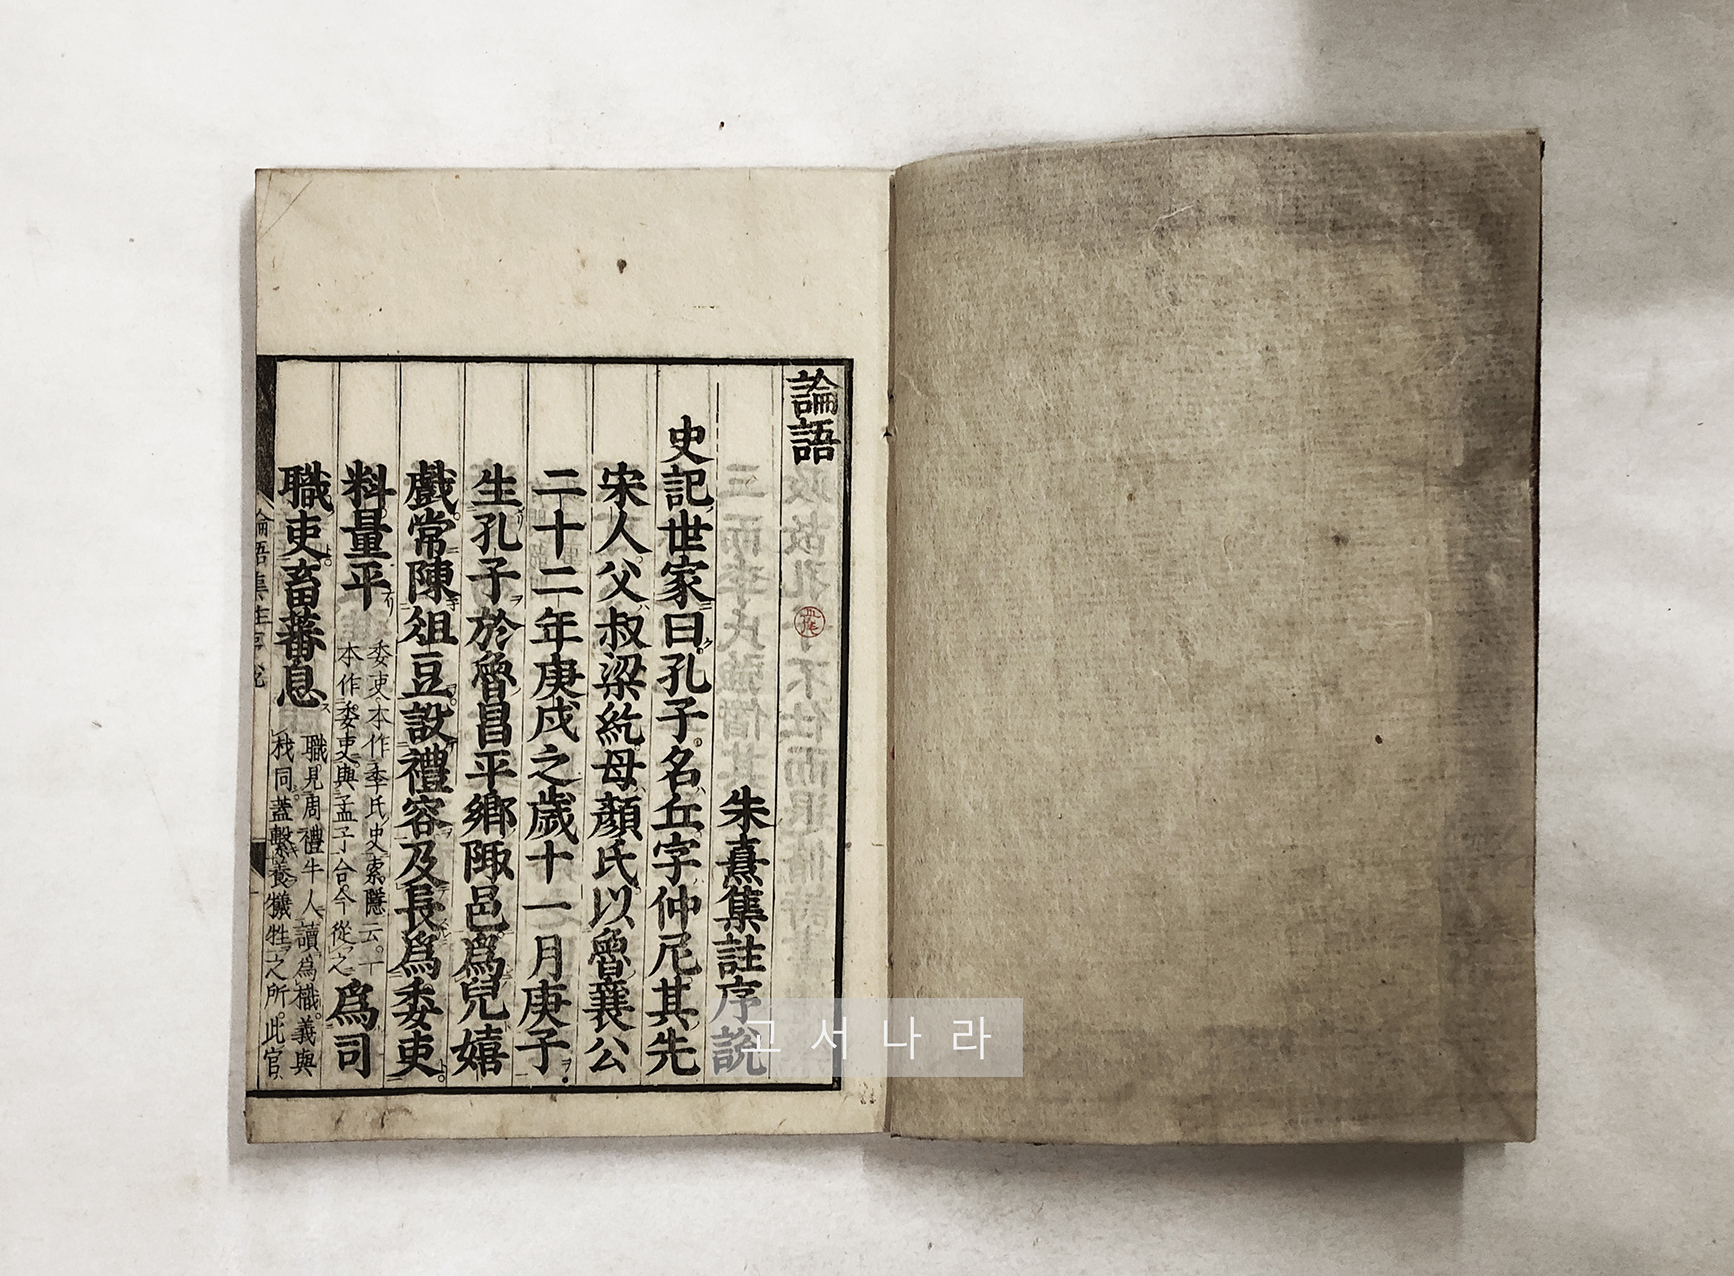 論語
朱熹集註序說
史記世家曰孔子名丘字仲尼其先
宋人父叔梁紇母顏氏以魯襄公
二十二年庚戌之歲十一月庚子
生孔子於魯昌平鄉陬邑爲兒嬉
戲常陳俎豆設禮容及長爲委吏
料量平
委吏本作季氏史索隱云一
本作委吏與孟子合今從之
爲司
職吏畜蕃息
職見周禮牛人讀爲樴義與
杙同蓋繫養犧牲之所此官
論語集註序說
고서나라